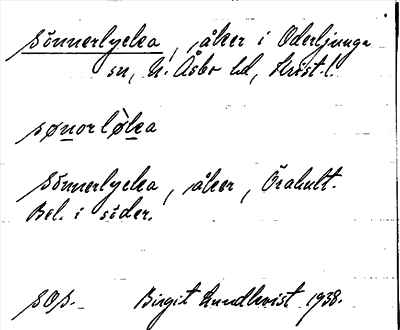 Sönnerlycka, åker i Oderljunga
sn, N. Åsbo hd, Krist. l.
sønorlø̀ka
Sönnerlycka, åker, Örahult.
Bel. i söder.
SOS. Birgit Lundkvist 1938.